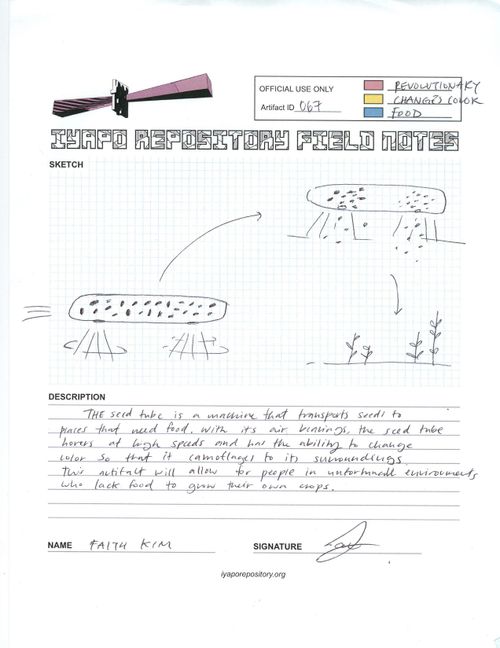 OFFICIAL USE ONLY
Artifact ID 067
REVOLUTIONARY
CHANGES COLOR
FOOD
IYAPO REPOSITORY FIELD NOTES
SKETCH
DESCRIPTION
THE seed tube is a machine that transports seeds to
places that need food. With its air bearings, the seed tube
hovers at high speeds and has the ability to change
color so that it camoflages to its surroundings.
This artifact will allow for people in environments
who lack food to grow their own crops.
NAME FAITH KIM
SIGNATURE
iyaporepository.org